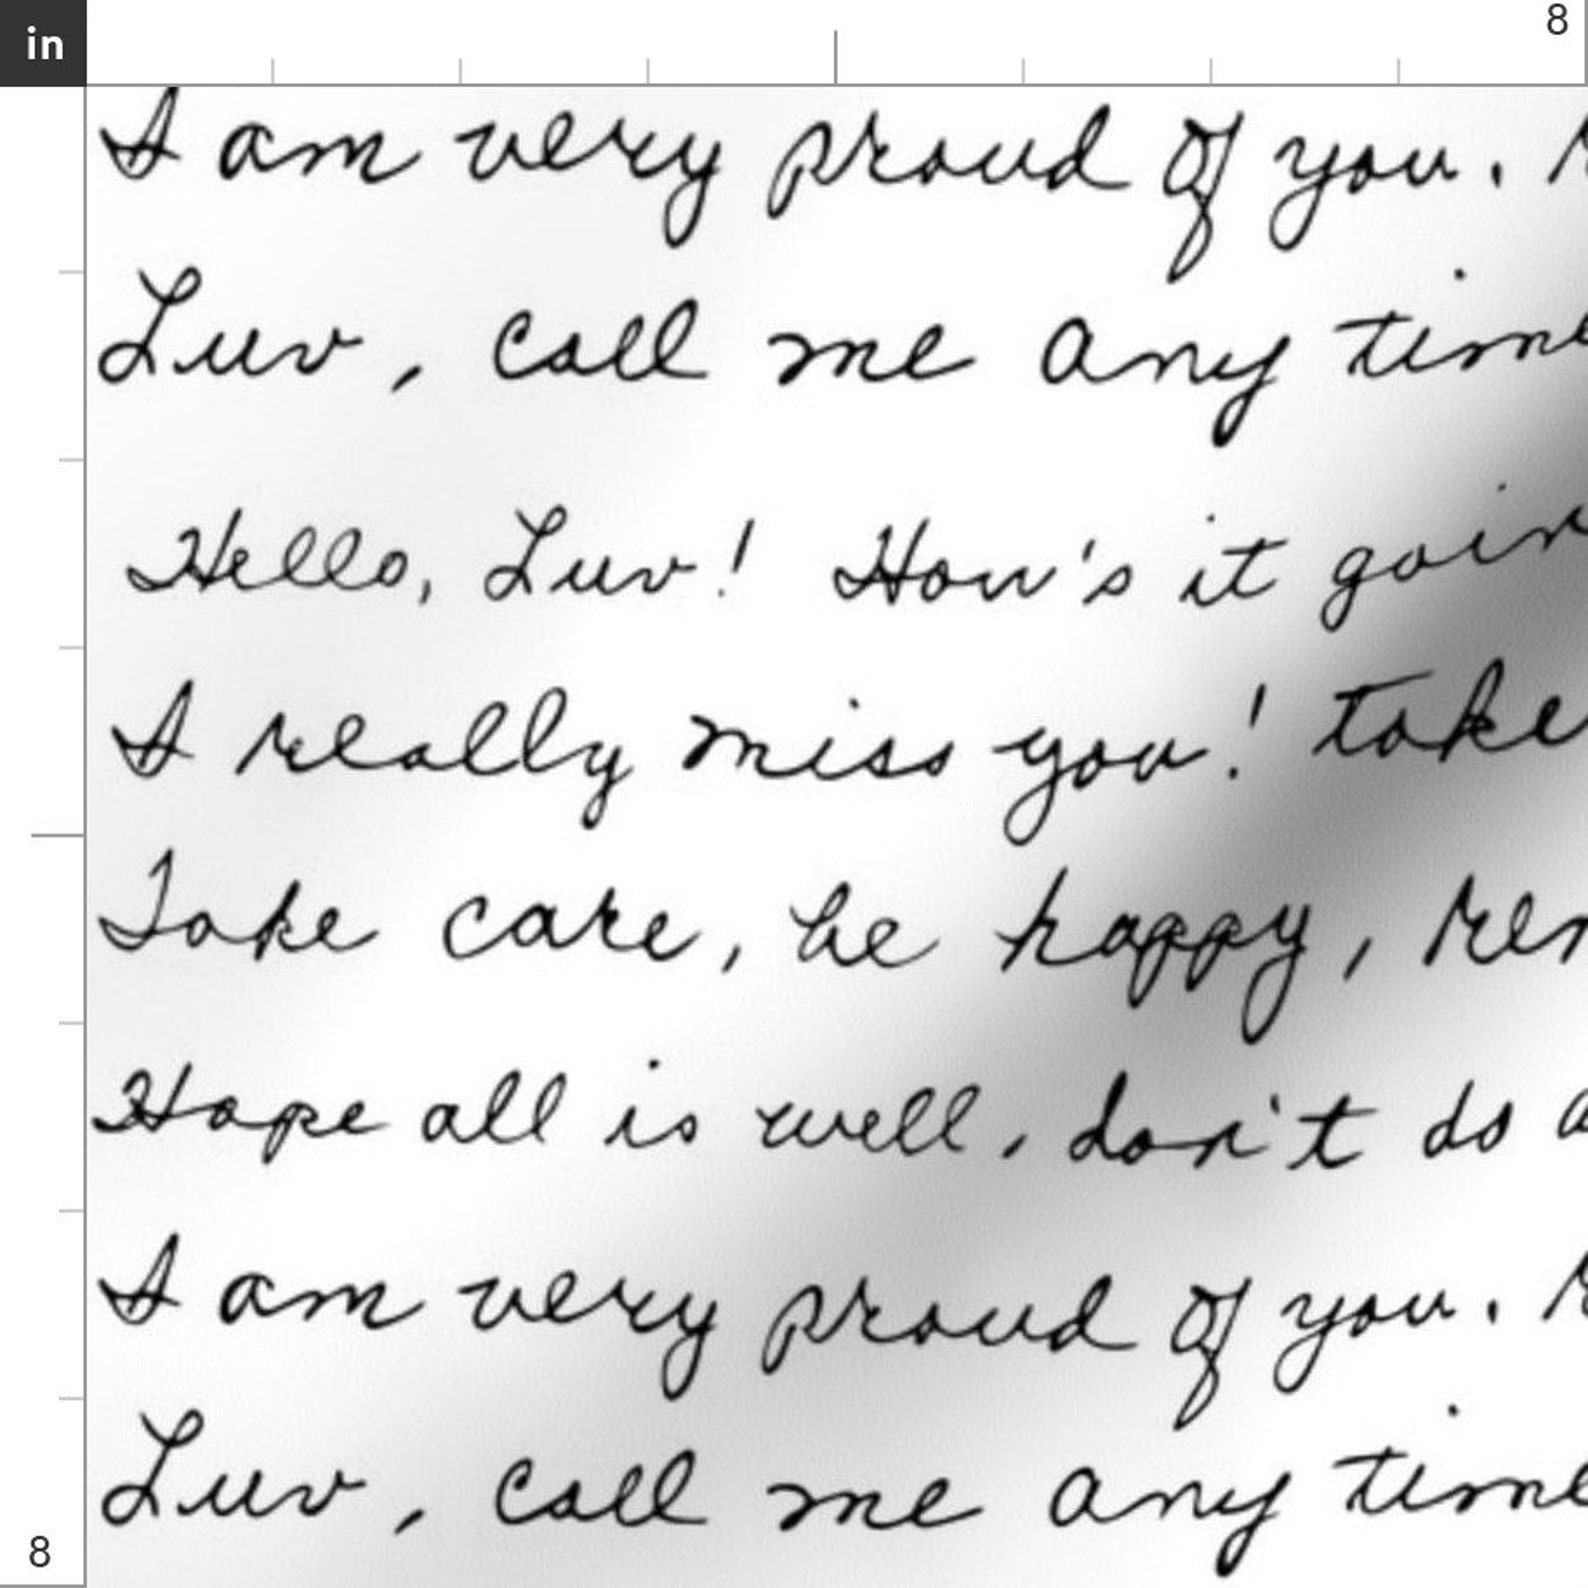 in 8
I am very proud of you.
Luv, call me any time
Hello, Luv! How's it goin
I really miss you! take
Take care, be happy, rem
Hope all is well, don't do a
I am very proud of you.
Luv, call me any time
8